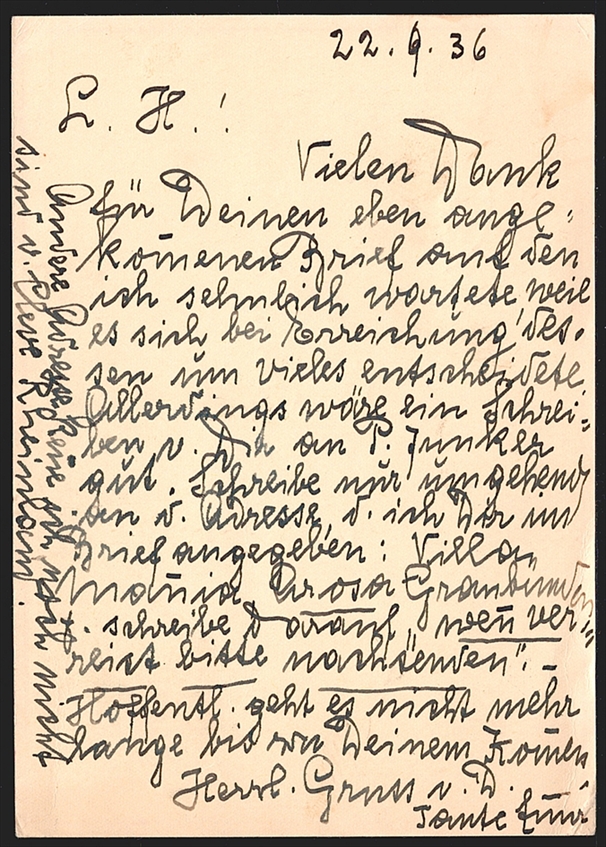 22.9.36
L. H.!
Vielen Dank
für Deinen eben ange-
kom̄enen Brief auf den
ich sehnlich wartete weil
es sich bei Erreichung des-
sen um vieles entscheidete
Allerdings wäre ein Schrei-
ben v. Dir an P. Junker
gut. Schreibe nur umgehend
an d. Adresse, d. ich Dir im
Brief angegeben: Villa
Arosa Graubünden
u. schreibe darauf "wen̄ ver-
reist bitte nachsenden". –
Hoffentl. geht es nicht mehr
lange bis zu Deinem Kom̄en
Herzl. Gruss v. D.
Tante
Andere Adresse keine ich noch nicht
sind v. Cleve Rheinland.